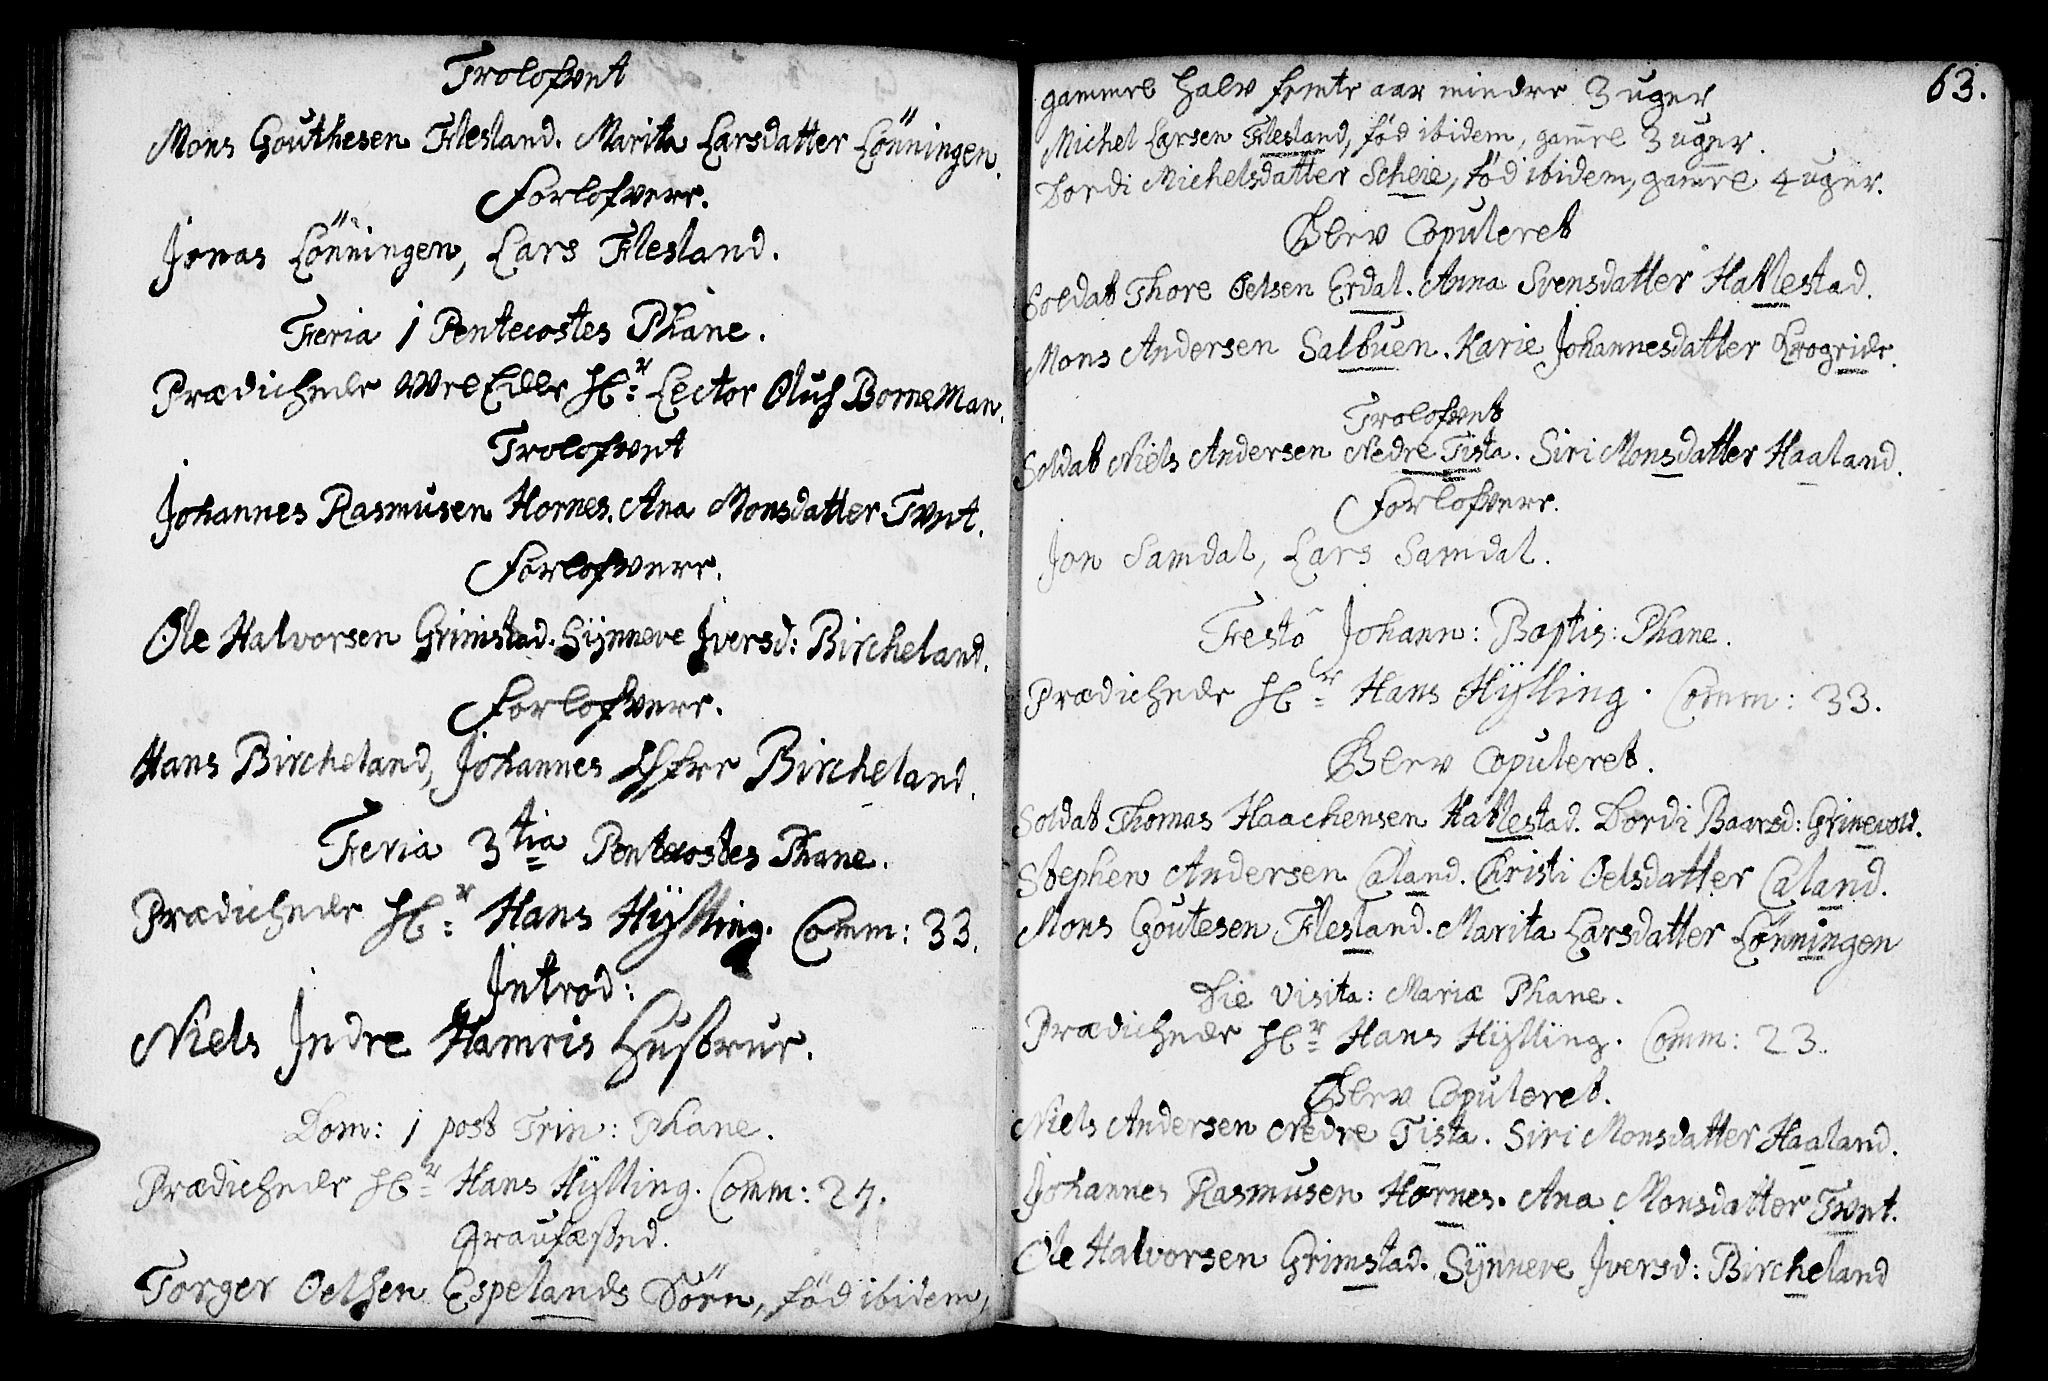 Trolofvet
Mons Gouthesen Flesland. Marita Larsdatter Lönningen.
Forlofvere.
Jonas Lönningen, Lars Flesland.
Feria 1 Pentecostes Phane.
Prædichede Hr: Lector Oluf Borneman.
Trolofvet
Johannes Rasmusen Hornes. Ana Monsdatter Tvet.
Forlofvere.
Ole Halvorsen Grimstad. Sÿnneve Iversd: Bircheland.
Forlofvere.
Hans Bircheland, Johannes Bircheland.
Feria 3tia Pentecostes Phane.
Prædichede Hr: Hans Hÿlling. Comm: 33.
Introd:
Niels Indre Hamris Hustrue.
Dom: 1 post Trin: Phane.
Prædichede Hr: Hans Hÿlling. Comm: 27.
Graufæsted.
Torger Oelsen Espelands Sörn, föd ibidem,
63.
gammel halv femte aar mindre 3 uger
Michel Larsen Flesland, föd ibidem, gam̄el 3 uger.
Dordi Michelsdatter Scheie, föd ibidem, gam̄el 4 uger.
Blev Copuleret
Soldat Thore Oelsen Erdal. Anna Svensdatter Hatlestad.
Mons Andersen Salbuen. Karie Johannesdatter Krogeide.
Trolofvet
Soldat Niels Andersen Nedre Tista. Siri Monsdatter Haaland.
Forlofvere.
Jon Samdal, Lars Samdal.
Festo Johann: Baptis: Phane.
Prædichede Hr: Hans Hÿlling. Comm: 33.
Blev Copuleret.
Soldat Thomas Haachensen Hatlestad. Dordi Baarsd: Grinevold.
Stephen Andersen Caland. Christi Oelsdatter Caland.
Mons Goutesen Flesland. Marita Larsdatter Lönningen
Die Visita: Mariæ Phane.
Prædichede Hr: Hans Hÿlling. Comm: 23.
Blev Copuleret.
Niels Andersen Nedre Tista. Siri Monsdatter Haaland.
Johannes Rasmusen Hornes. Ana Monsdatter Tvet.
Ole Halvorsen Grimstad. Sÿnneve Iversd: Bircheland